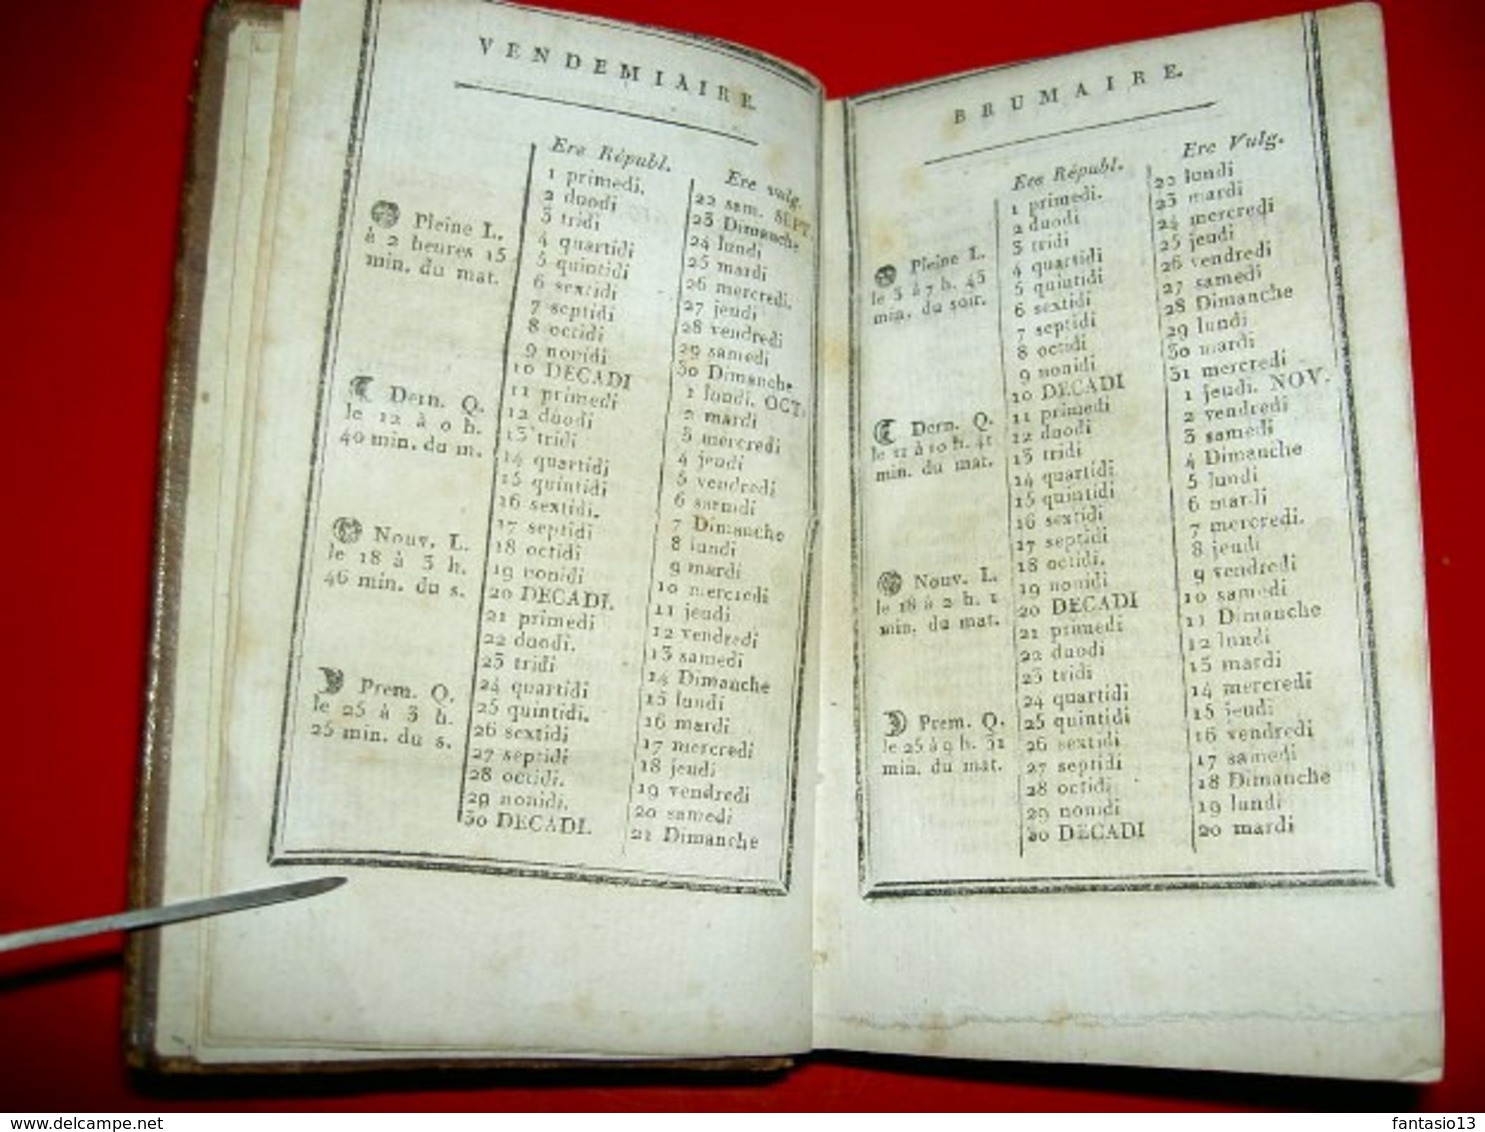 VENDEMIAIRE.
Ere Républ.
Ere vulg.
Pleine L.
à 2 heures 15
min. du mat.
Dern. Q.
le 12 à 0 h.
40 min. du m.
Nouv. L.
le 18 à 3 h.
46 min. du s.
Prem. Q.
le 25 à 3 h.
25 min. du s.
1 primedi. 22 sam. SEPT.
2 duodi 23 Dimanche
3 tridi 24 lundi
4 quartidi 25 mardi
5 quintidi 26 mercredi.
6 sextidi 27 jeudi
7 septidi 28 vendredi
8 octidi 29 samedi
9 nonidi 30 Dimanche
10 DECADI 1 lundi. OCT.
11 primedi 2 mardi
12 duodi 3 mercredi
13 tridi 4 jeudi
14 quartidi 5 vendredi
15 quintidi 6 samedi
16 sextidi. 7 Dimanche
17 septidi 8 lundi
18 octidi 9 mardi
19 nonidi 10 mercredi
20 DECADI. 11 jeudi
21 primedi 12 vendredi
22 duodi. 13 samedi
23 tridi 14 Dimanche
24 quartidi 15 lundi
25 quintidi. 16 mardi
26 sextidi 17 mercredi
27 septidi 18 jeudi
28 octidi. 19 vendredi
29 nonidi. 20 samedi
30 DECADI. 21 Dimanche
BRUMAIRE.
Ere Républ.
Ere Vulg.
Pleine L.
le 3 à 7 h. 43
min. du soir.
Dern. Q.
le 11 à 10 h. 41
min. du mat.
Nouv. L.
le 18 à 2 h. 1
min. du mat.
Prem. Q.
le 25 à 9 h. 31
min. du mat.
1 primedi. 22 lundi
2 duodi 23 mardi
3 tridi 24 mercredi
4 quartidi 25 jeudi
5 quintidi 26 vendredi
6 sextidi 27 samedi
7 septidi 28 Dimanche
8 octidi 29 lundi
9 nonidi 30 mardi
10 DECADI 31 mercredi
11 primedi 1 jeudi. NOV.
12 duodi 2 vendredi
13 tridi 3 samedi
14 quartidi 4 Dimanche
15 quintidi 5 lundi
16 sextidi 6 mardi
17 septidi 7 mercredi.
18 octidi. 8 jeudi
19 nonidi 9 vendredi
20 DECADI 10 samedi
21 primedi 11 Dimanche
22 duodi 12 lundi
23 tridi 13 mardi
24 quartidi 14 mercredi
25 quintidi 15 jeudi
26 sextidi 16 vendredi
27 septidi 17 samedi
28 octidi 18 Dimanche
29 nonidi 19 lundi
30 DECADI 20 mardi
www.delcampe.net
fantasio13